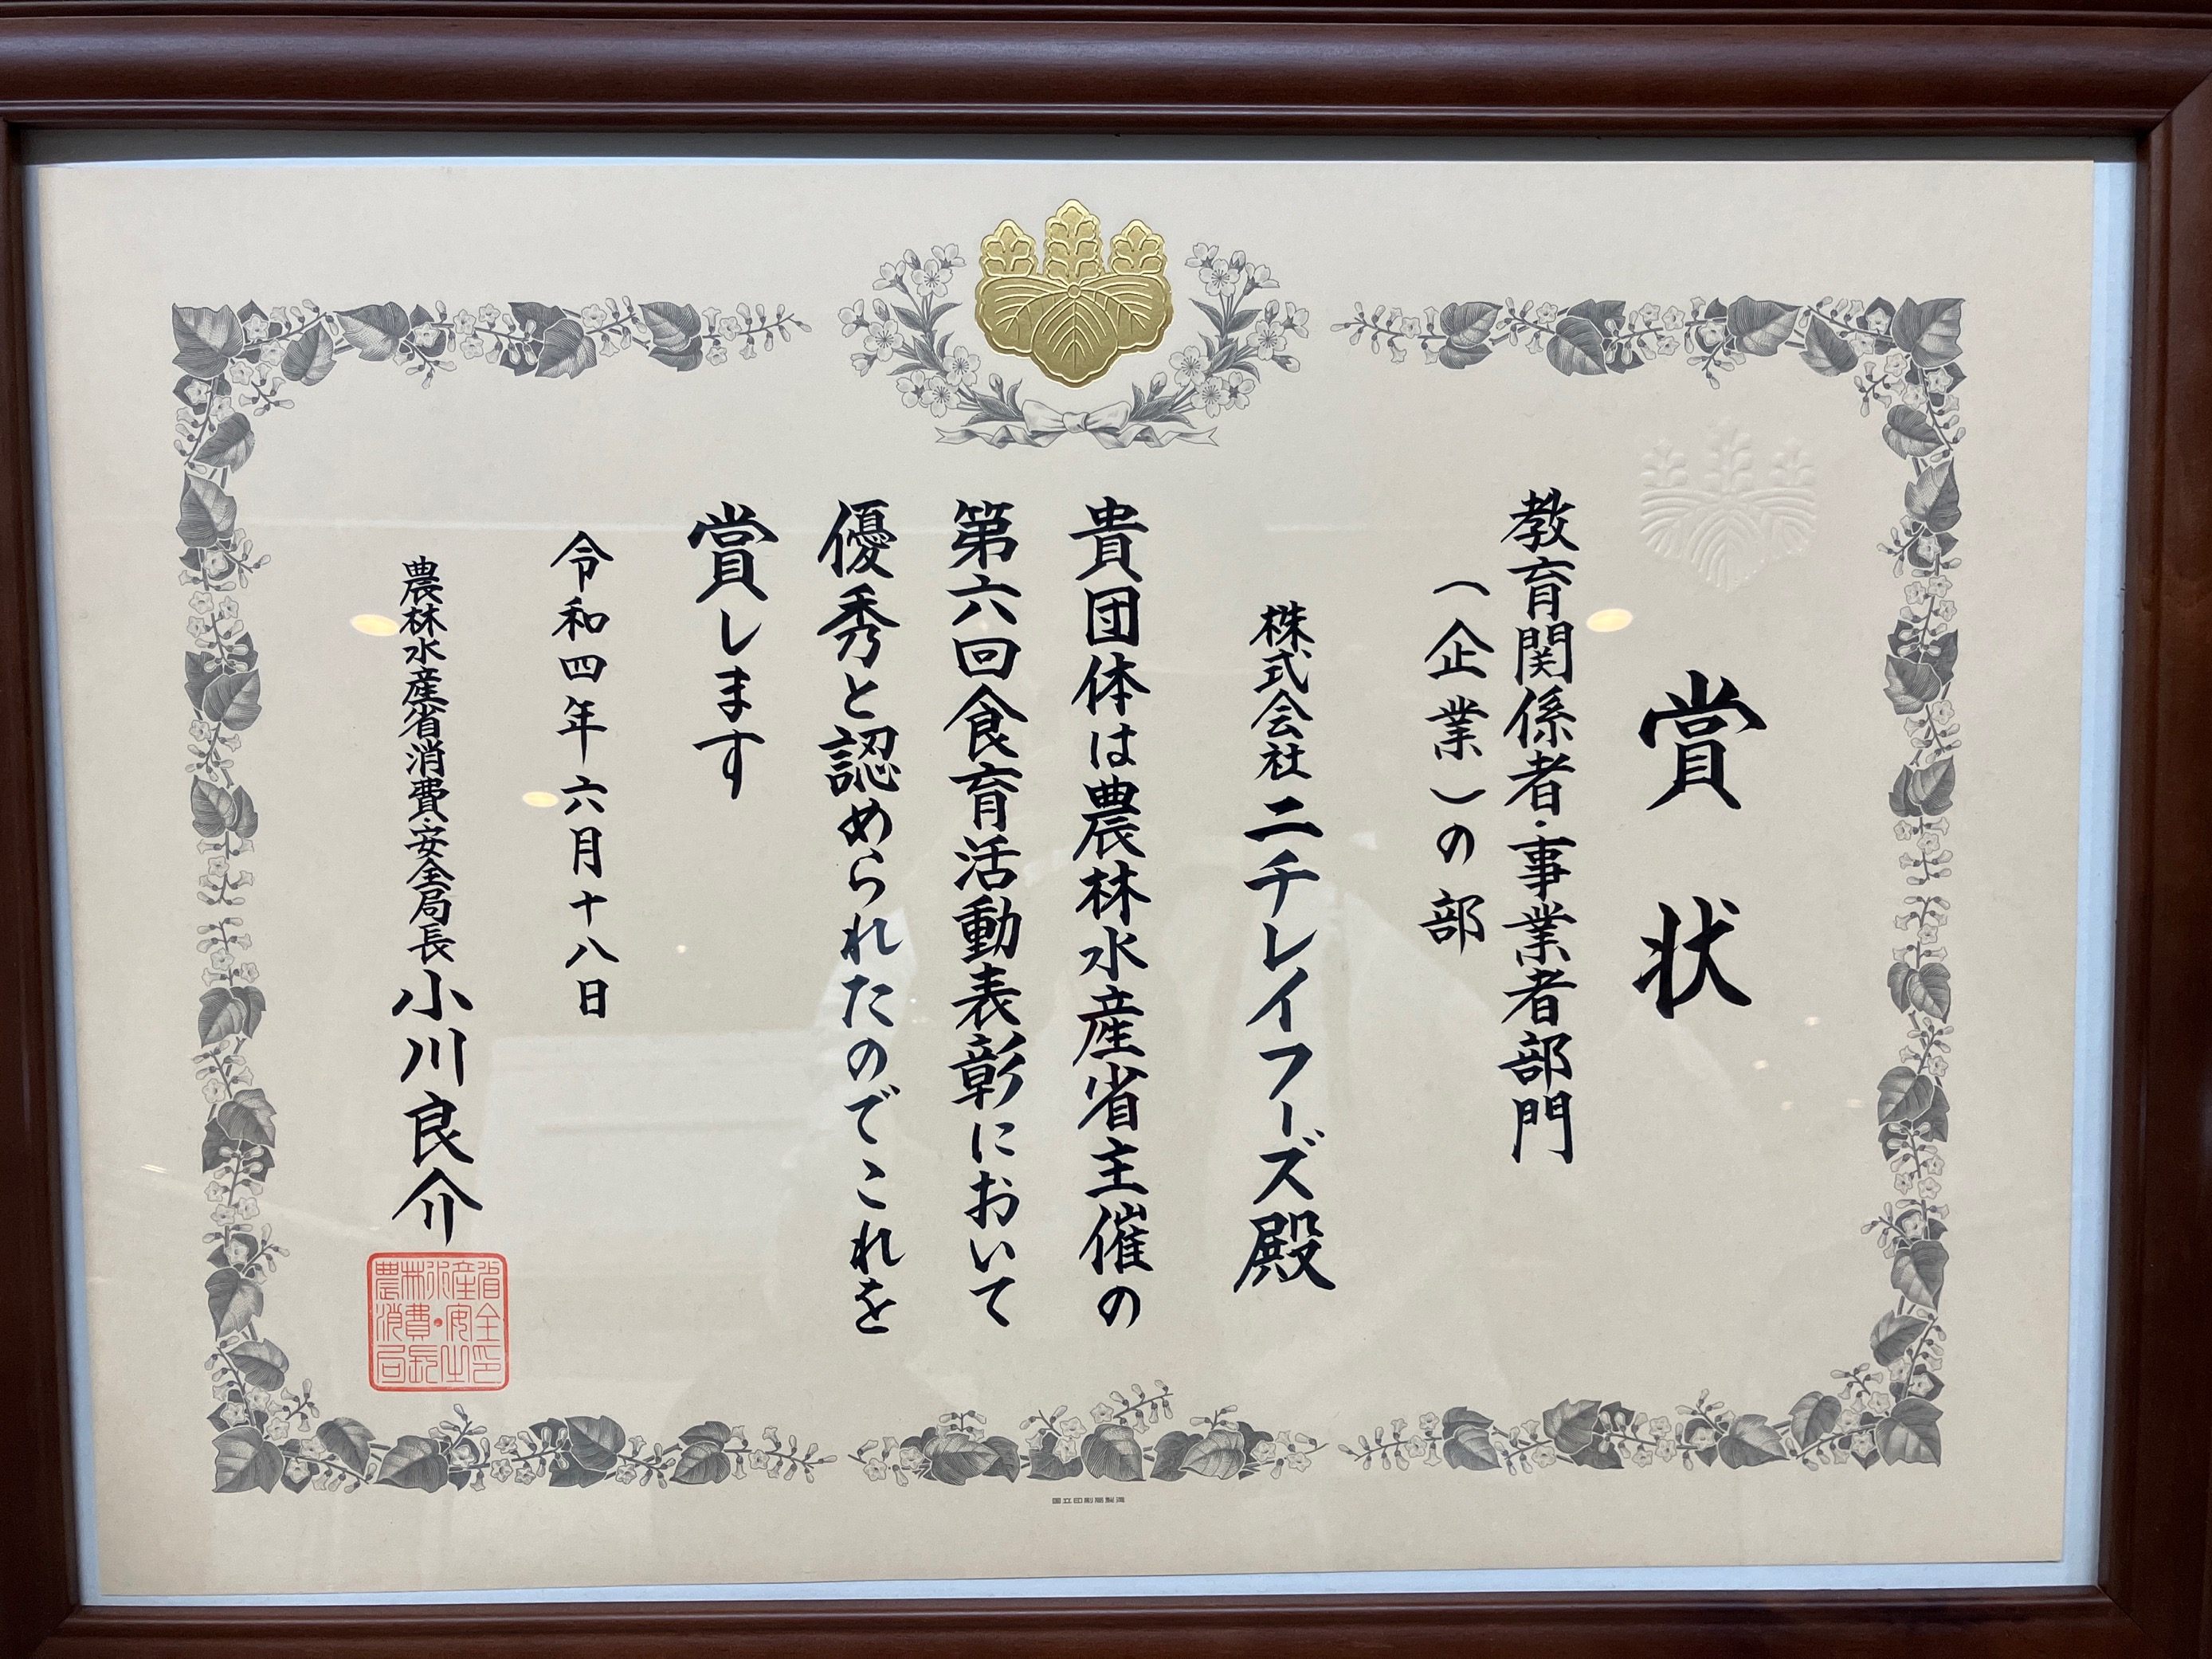 賞状
教育関係者・事業者部門
(企業)の部
株式会社ニチレイフーズ殿
貴団体は農林水産省主催の
第六回食育活動表彰において
優秀と認められたのでこれを
賞します
令和四年六月十八日
農林水産省消費・安全局長小川良介
農林水産省
消費・安全
局長之印
国立印刷局製造